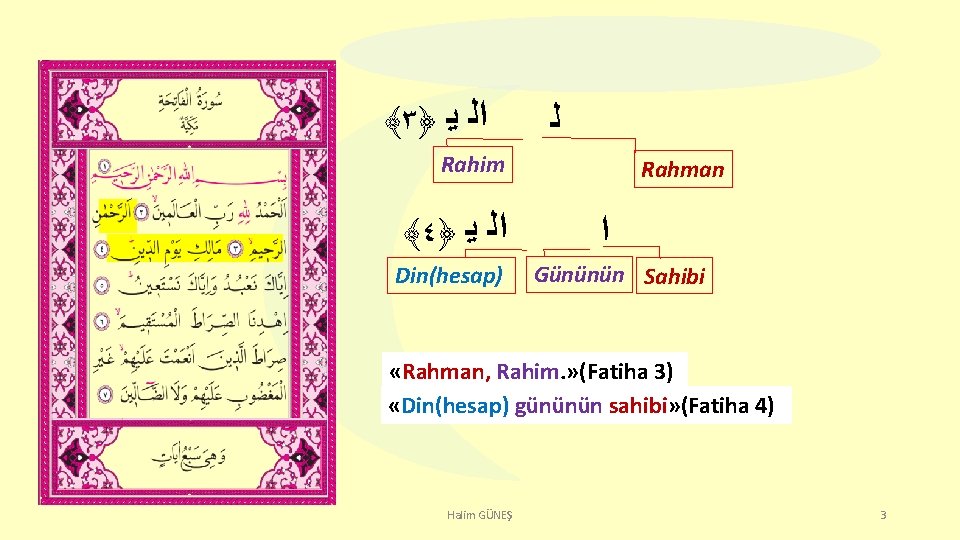 سُورَةُ الْفَاتِحَةِ
مَكِّيَّةٌ
بِسْمِ اللّٰهِ الرَّحْمٰنِ الرَّحِيمِ ﴿١﴾
اَلْحَمْدُ لِلّٰهِ رَبِّ الْعَالَمِينَ ﴿٢﴾ اَلرَّحْمٰنِ
الرَّحِيمِ ﴿٣﴾ مَالِكِ يَوْمِ الدِّينِ ﴿٤﴾
اِيَّاكَ نَعْبُدُ وَاِيَّاكَ نَسْتَعِينُ ﴿٥﴾
اِهْدِنَا الصِّرَاطَ الْمُسْتَقِيمَ ﴿٦﴾
صِرَاطَ الَّذِينَ اَنْعَمْتَ عَلَيْهِمْ غَيْرِ
الْمَغْضُوبِ عَلَيْهِمْ وَلَا الضَّالِّينَ ﴿٧﴾
وَهِيَ سَبْعُ اٰيَاتٍ
ﻟ اﻟ ﻳ ﴿٣﴾
Rahim Rahman
ا اﻟ ﻳ ﴿٤﴾
Din(hesap) Gününün Sahibi
«Rahman, Rahim.»(Fatiha 3)
«Din(hesap) gününün sahibi»(Fatiha 4)
Halim GÜNEŞ 3